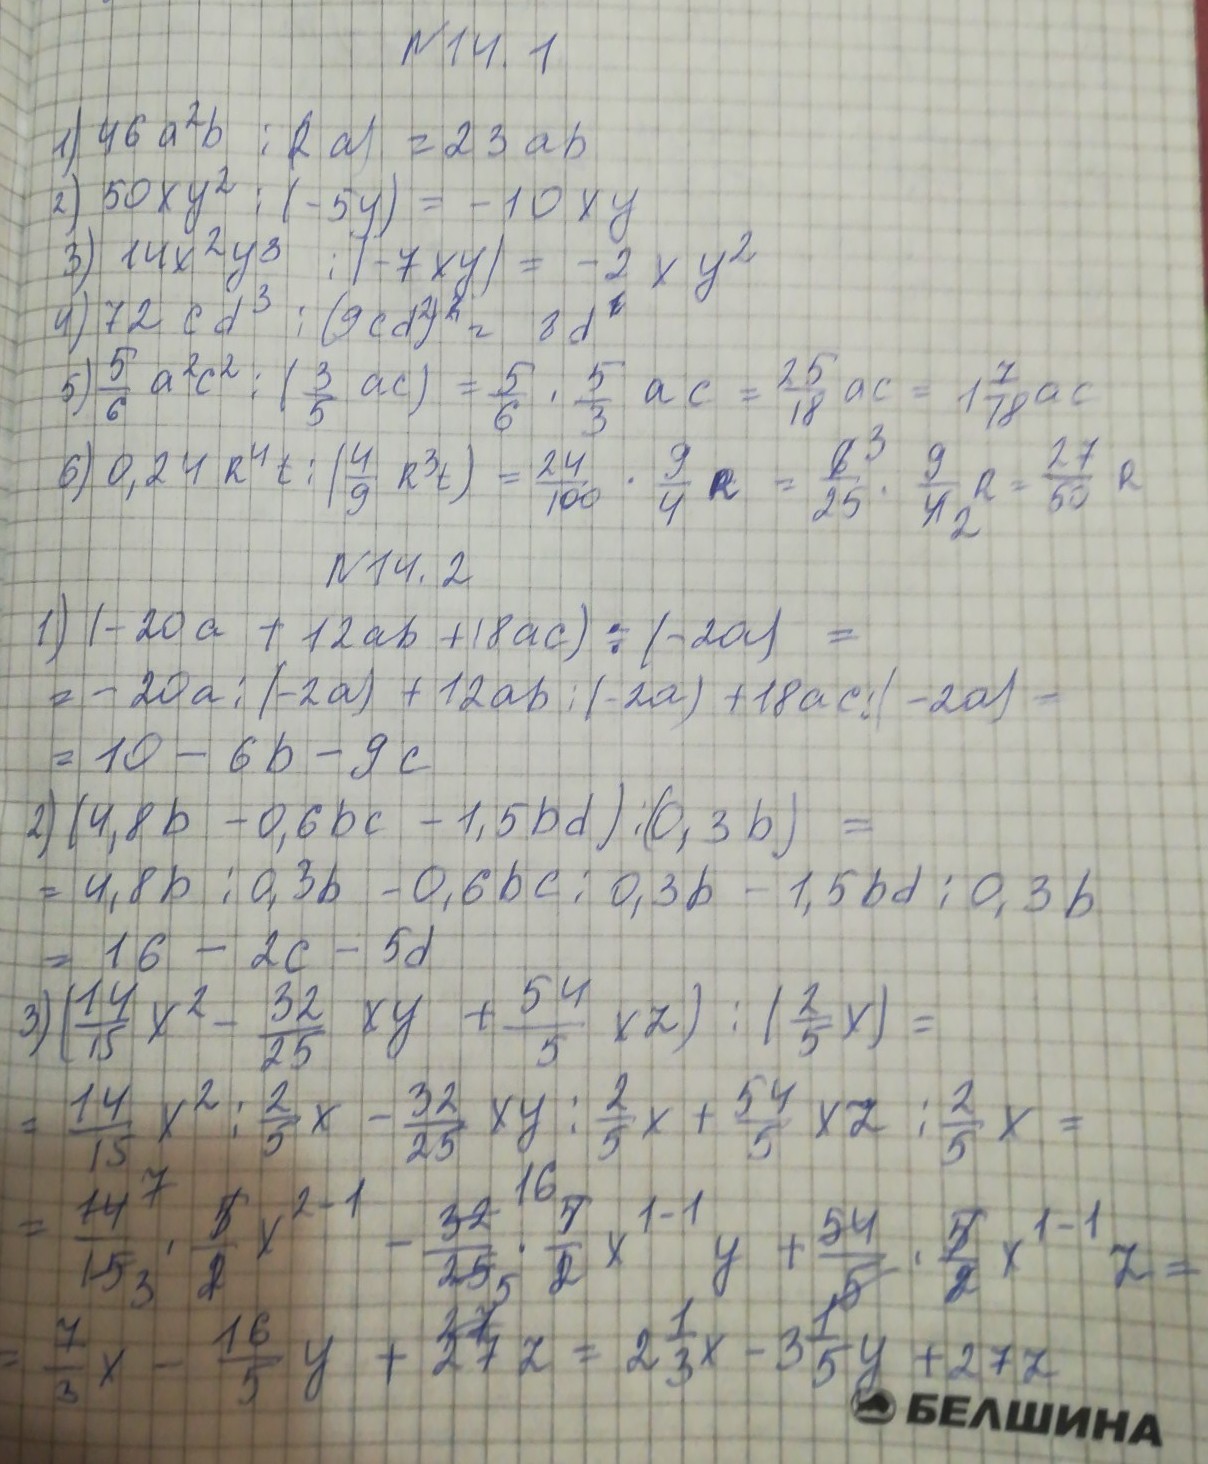 N14.1
1) 46a²b : (2a) = 23ab
2) 50xy² : (-5y) = -10xy
3) 14x²y³ : (-7xy) = -2xy²
4) 72cd³ : (9cd²) = 8d
5) 5/6 a²c² : (3/5 ac) = 5/6 · 5/3 ac = 25/18 ac = 1 7/18 ac
6) 0,24k⁴t : (4/9 k³t) = 24/100 · 9/4 k = 6³/25 · 9/4₂ k = 27/50 k
N14.2
1) (-20a + 12ab + 18ac) : (-2a) =
= -20a : (-2a) + 12ab : (-2a) + 18ac : (-2a) =
= 10 - 6b - 9c
2) (4,8b - 0,6bc - 1,5bd) : (0,3b) =
= 4,8b : 0,3b - 0,6bc : 0,3b - 1,5bd : 0,3b
= 16 - 2c - 5d
3) (14/15 x² - 32/25 xy + 54/5 xz) : (2/5 x) =
= 14/15 x² : 2/5 x - 32/25 xy : 2/5 x + 54/5 xz : 2/5 x =
= 14⁷/15₃ · 5/2 x²⁻¹ - 32¹⁶/25₅ · 5/2 x¹⁻¹ y + 54/5 · 5/2 x¹⁻¹ z =
= 7/3 x - 16/5 y + 27z = 2 1/3 x - 3 1/5 y + 27z
БЕЛШИНА